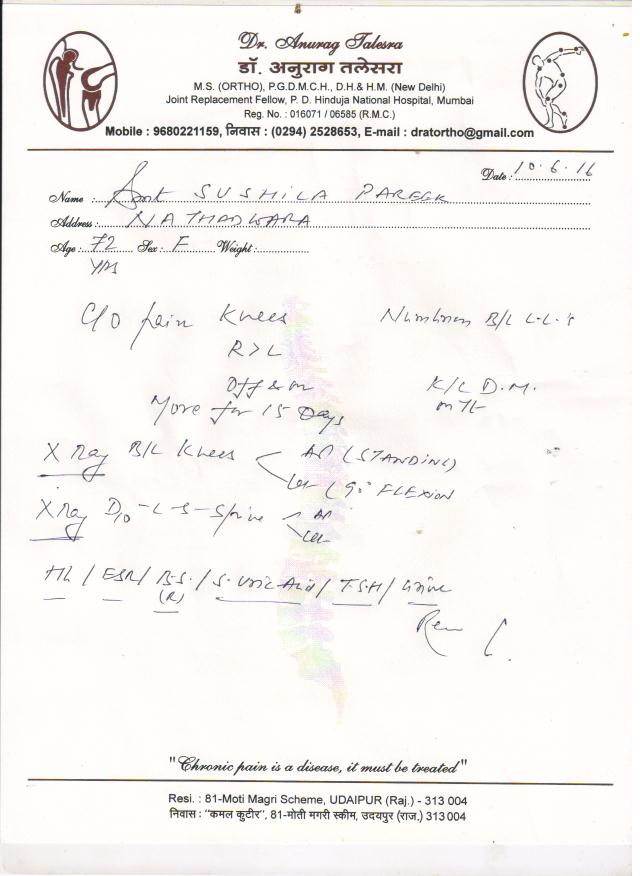 Dr. Anurag Talesra
डॉ. अनुराग तलेसरा
M.S. (ORTHO), P.G.D.M.C.H., D.H.& H.M. (New Delhi)
Joint Replacement Fellow, P. D. Hinduja National Hospital, Mumbai
Reg. No. : 016071 / 06585 (R.M.C.)
Mobile : 9680221159, निवास : (0294) 2528653, E-mail : dratortho@gmail.com
Date : 10.6.16
Name : Smt SUSHILA PAREEK
Address : NATHADWARA
Age : 72 Sex : F Weight :
yrs
C/O pain Knees Numbness B/L L.L.'s
R>L
Off & on K/C D.M.
More for 15 Days on Tt
X Ray B/L Knees AP (STANDING)
Lat (90° FLEXION
X Ray D10-L-S-Spine AP
Lat
Hb / ESR / B.S. / S. Uric Acid / T.S.H / Urine
(R)
Rev
"Chronic pain is a disease, it must be treated"
Resi. : 81-Moti Magri Scheme, UDAIPUR (Raj.) - 313 004
निवास : "कमल कुटीर", 81-मोती मगरी स्कीम, उदयपुर (राज.) 313 004